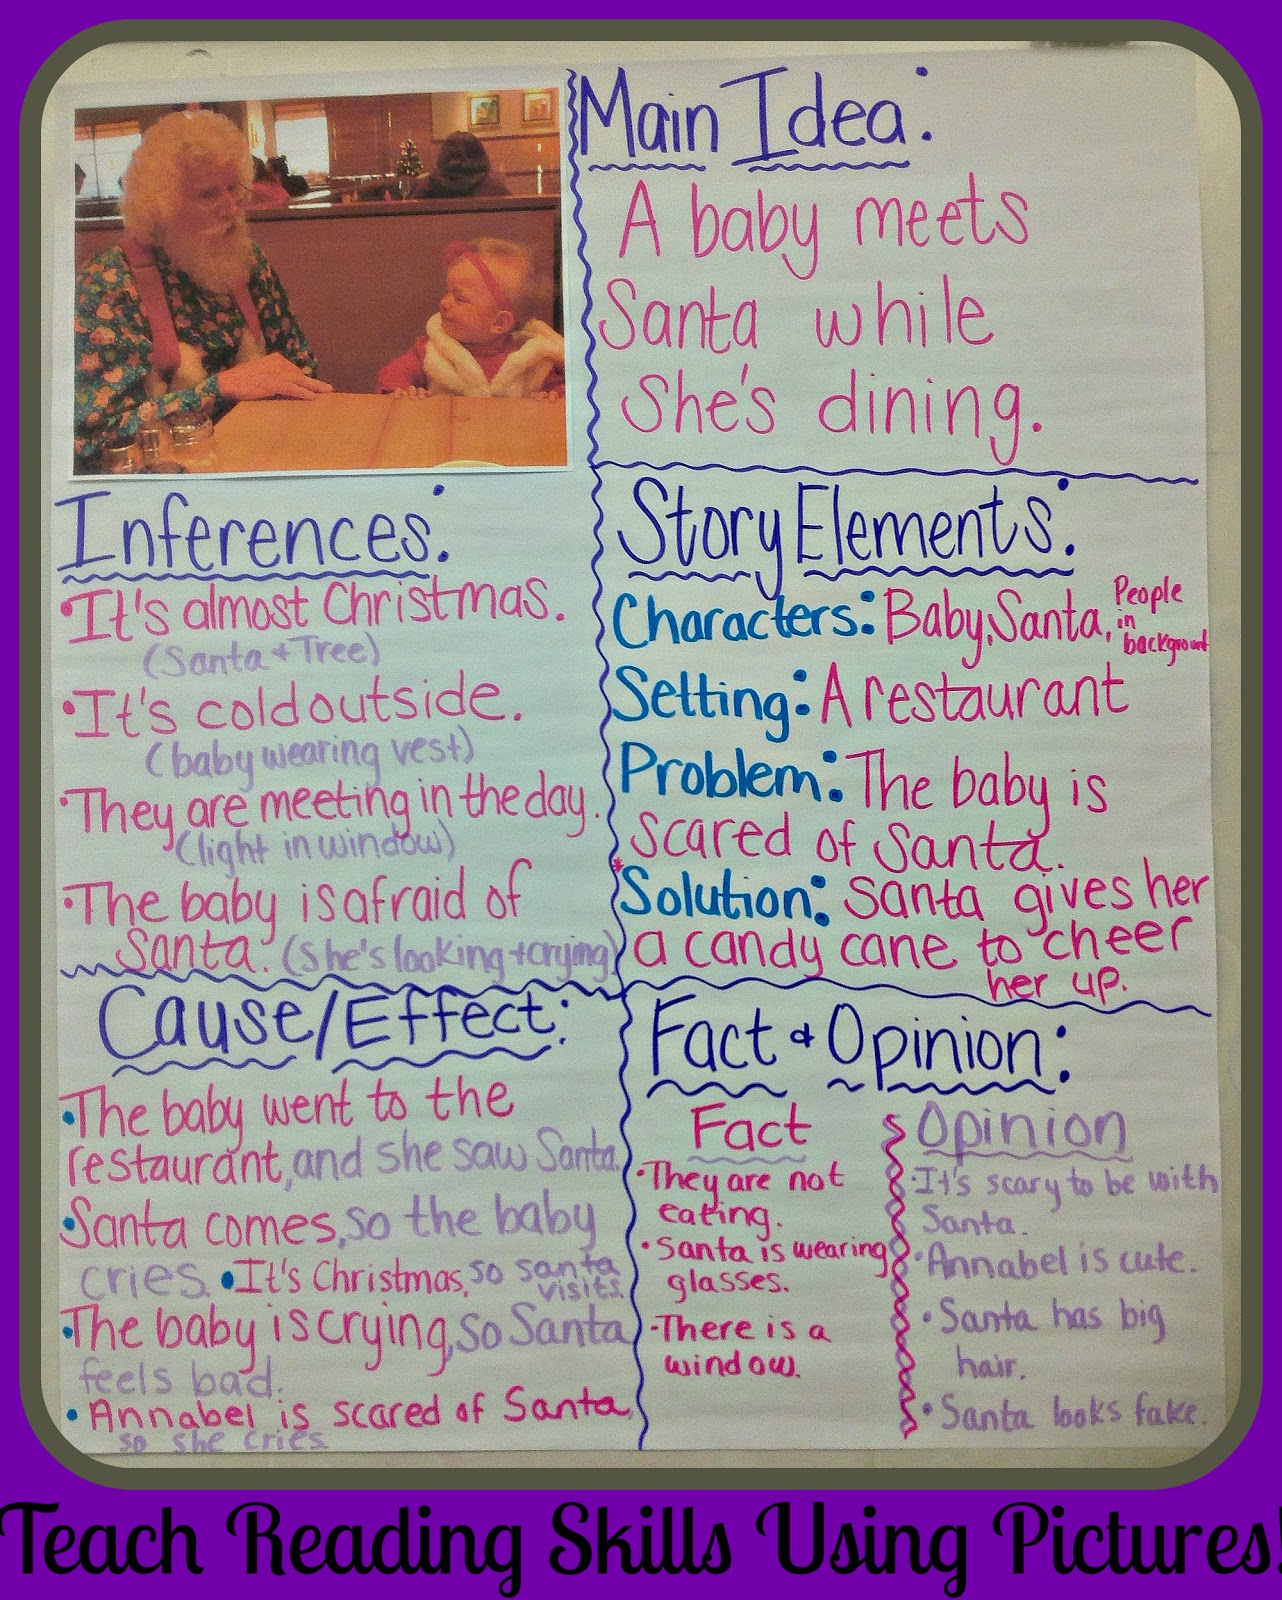 Main Idea:
A baby meets
Santa while
she's dining.
Inferences:
•It's almost Christmas.
(Santa + Tree)
•It's cold outside.
(baby wearing vest)
•They are meeting in the day.
(light in window)
•The baby is afraid of
Santa. (She's looking + crying)
Story Elements:
Characters: Baby, Santa, People
in
background
Setting: A restaurant
Problem: The baby is
scared of Santa.
*Solution: Santa gives her
a candy cane to cheer
her up.
Cause/Effect:
•The baby went to the
restaurant, and she saw Santa.
•Santa comes, so the baby
cries. •It's Christmas, so santa
visits.
•The baby is crying, so Santa
feels bad.
•Annabel is scared of Santa,
so she cries.
Fact + Opinion:
Fact
•They are not
eating.
•Santa is wearing
glasses.
-There is a
window.
Opinion
•It's scary to be with
Santa.
•Annabel is cute.
•Santa has big
hair.
•Santa looks fake.
Teach Reading Skills Using Pictures!